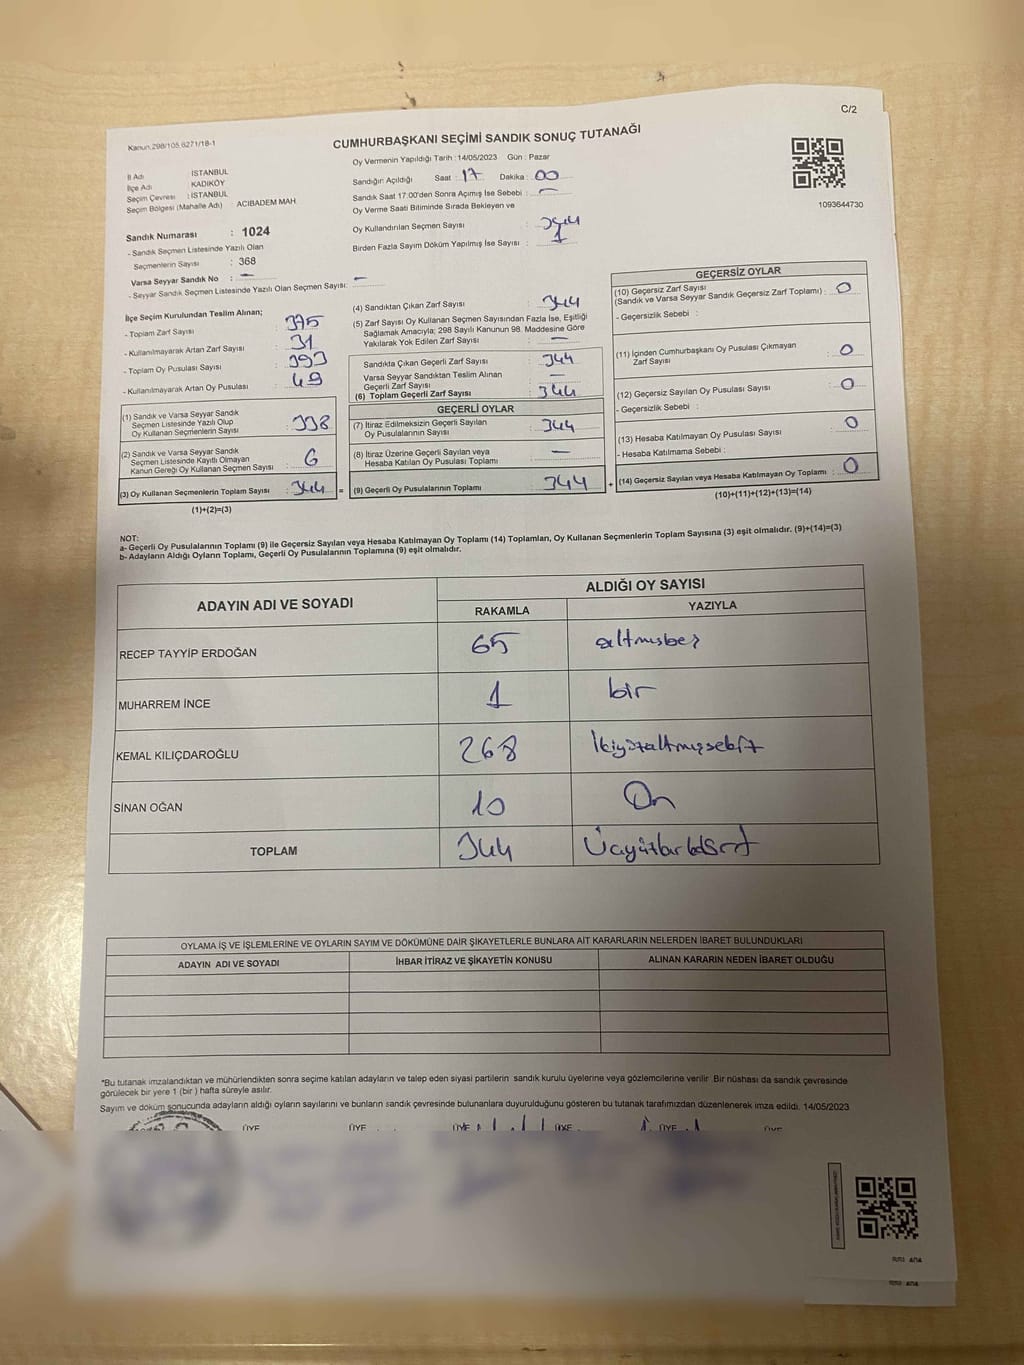 C/2
Kanun 298/105.6271/18-1
CUMHURBAŞKANI SEÇİMİ SANDIK SONUÇ TUTANAĞI
İl Adı : İSTANBUL
İlçe Adı : KADIKÖY
Seçim Çevresi : İSTANBUL
Seçim Bölgesi (Mahalle Adı) : ACIBADEM MAH
Sandık Numarası : 1024
- Sandık Seçmen Listesinde Yazılı Olan
Seçmenlerin Sayısı : 368
Varsa Seyyar Sandık No : —
- Seyyar Sandık Seçmen Listesinde Yazılı Olan Seçmen Sayısı: —
Oy Vermenin Yapıldığı Tarih : 14/05/2023 Gün : Pazar
Sandığın Açıldığı Saat : 17 Dakika : 00
Sandık Saat 17:00'den Sonra Açımış İse Sebebi : —
Oy Verme Saati Bitiminde Sırada Bekleyen ve
Oy Kullandırılan Seçmen Sayısı : 344
Birden Fazla Sayım Döküm Yapılmış İse Sayısı : 1
1093644730
İlçe Seçim Kurulundan Teslim Alınan;
- Toplam Zarf Sayısı : 375
- Kullanılmayarak Artan Zarf Sayısı : 31
- Toplam Oy Pusulası Sayısı : 393
- Kullanılmayarak Artan Oy Pusulası : 49
(1) Sandık ve Varsa Seyyar Sandık
Seçmen Listesinde Yazılı Olup
Oy Kullanan Seçmenlerin Sayısı : 338
(2) Sandık ve Varsa Seyyar Sandık
Seçmen Listesinde Kayıtlı Olmayan
Kanun Gereği Oy Kullanan Seçmen Sayısı : 6
(3) Oy Kullanan Seçmenlerin Toplam Sayısı : 344 =
(1)+(2)=(3)
(4) Sandıktan Çıkan Zarf Sayısı : 344
(5) Zarf Sayısı Oy Kullanan Seçmen Sayısından Fazla İse, Eşitliği
Sağlamak Amacıyla; 298 Sayılı Kanunun 98. Maddesine Göre
Yakılarak Yok Edilen Zarf Sayısı : —
Sandıkta Çıkan Geçerli Zarf Sayısı : 344
Varsa Seyyar Sandıktan Teslim Alınan
Geçerli Zarf Sayısı : —
(6) Toplam Geçerli Zarf Sayısı : 344
GEÇERLİ OYLAR
(7) İtiraz Edilmeksizin Geçerli Sayılan
Oy Pusulalarının Sayısı : 344
(8) İtiraz Üzerine Geçerli Sayılan veya
Hesaba Katılan Oy Pusulası Toplamı : —
(9) Geçerli Oy Pusulalarının Toplamı : 344 +
GEÇERSİZ OYLAR
(10) Geçersiz Zarf Sayısı
(Sandık ve Varsa Seyyar Sandık Geçersiz Zarf Toplamı) : 0
- Geçersizlik Sebebi :
(11) İçinden Cumhurbaşkanı Oy Pusulası Çıkmayan
Zarf Sayısı : 0
(12) Geçersiz Sayılan Oy Pusulası Sayısı : 0
- Geçersizlik Sebebi :
(13) Hesaba Katılmayan Oy Pusulası Sayısı : 0
- Hesaba Katılmama Sebebi :
(14) Geçersiz Sayılan veya Hesaba Katılmayan Oy Toplamı : 0
(10)+(11)+(12)+(13)=(14)
NOT:
a- Geçerli Oy Pusulalarının Toplamı (9) ile Geçersiz Sayılan veya Hesaba Katılmayan Oy Toplamı (14) Toplamları, Oy Kullanan Seçmenlerin Toplam Sayısına (3) eşit olmalıdır. (9)+(14)=(3)
b- Adayların Aldığı Oyların Toplamı, Geçerli Oy Pusulalarının Toplamına (9) eşit olmalıdır.
ADAYIN ADI VE SOYADI ALDIĞI OY SAYISI
RAKAMLA YAZIYLA
RECEP TAYYİP ERDOĞAN 65 altmışbeş
MUHARREM İNCE 1 bir
KEMAL KILIÇDAROĞLU 268 İkiyüzaltmışsekiz
SİNAN OĞAN 10 On
TOPLAM 344 Üçyüzkırkdört
OYLAMA İŞ VE İŞLEMLERİNE VE OYLARIN SAYIM VE DÖKÜMÜNE DAİR ŞİKAYETLERLE BUNLARA AİT KARARLARIN NELERDEN İBARET BULUNDUKLARI
ADAYIN ADI VE SOYADI İHBAR İTİRAZ VE ŞİKAYETİN KONUSU ALINAN KARARIN NEDEN İBARET OLDUĞU
*Bu tutanak imzalandıktan ve mühürlendikten sonra seçime katılan adayların ve talep eden siyasi partilerin sandık kurulu üyelerine veya gözlemcilerine verilir Bir nüshası da sandık çevresinde
görülecek bir yere 1 (bir) hafta süreyle asılır.
Sayım ve döküm sonucunda adayların aldığı oyların sayılarını ve bunların sandık çevresinde bulunanlara duyurulduğunu gösteren bu tutanak tarafımızdan düzenlenerek imza edildi. 14/05/2023
ÜYE ÜYE ÜYE ÜYE ÜYE ÜYE